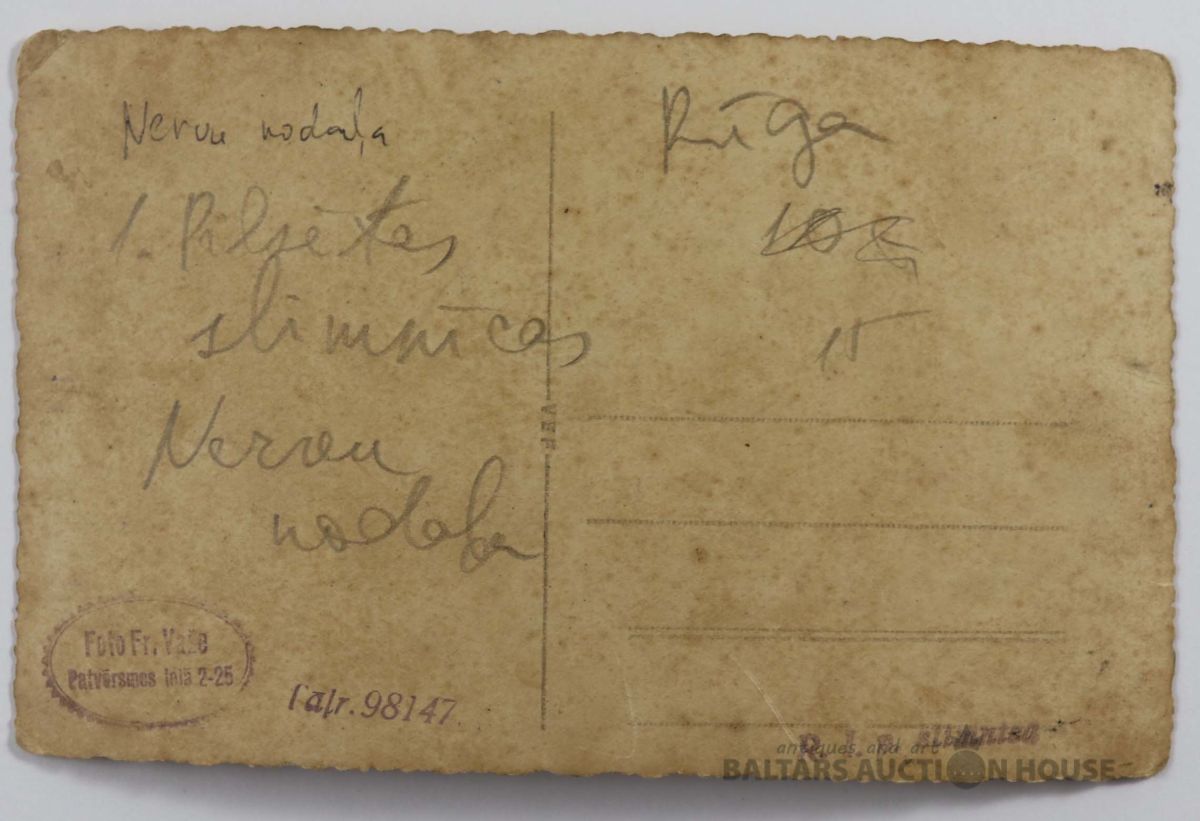 Nervu nodaļa
1. Pilsētas
slimnīcas
Nervu
nodaļa
Rīga
15
Foto Fr. Važe
Patvērsmes ielā 2-25
Taļr. 98147.
R. 1. p. slimnīca
antiques and art
BALTARS AUCTION HOUSE